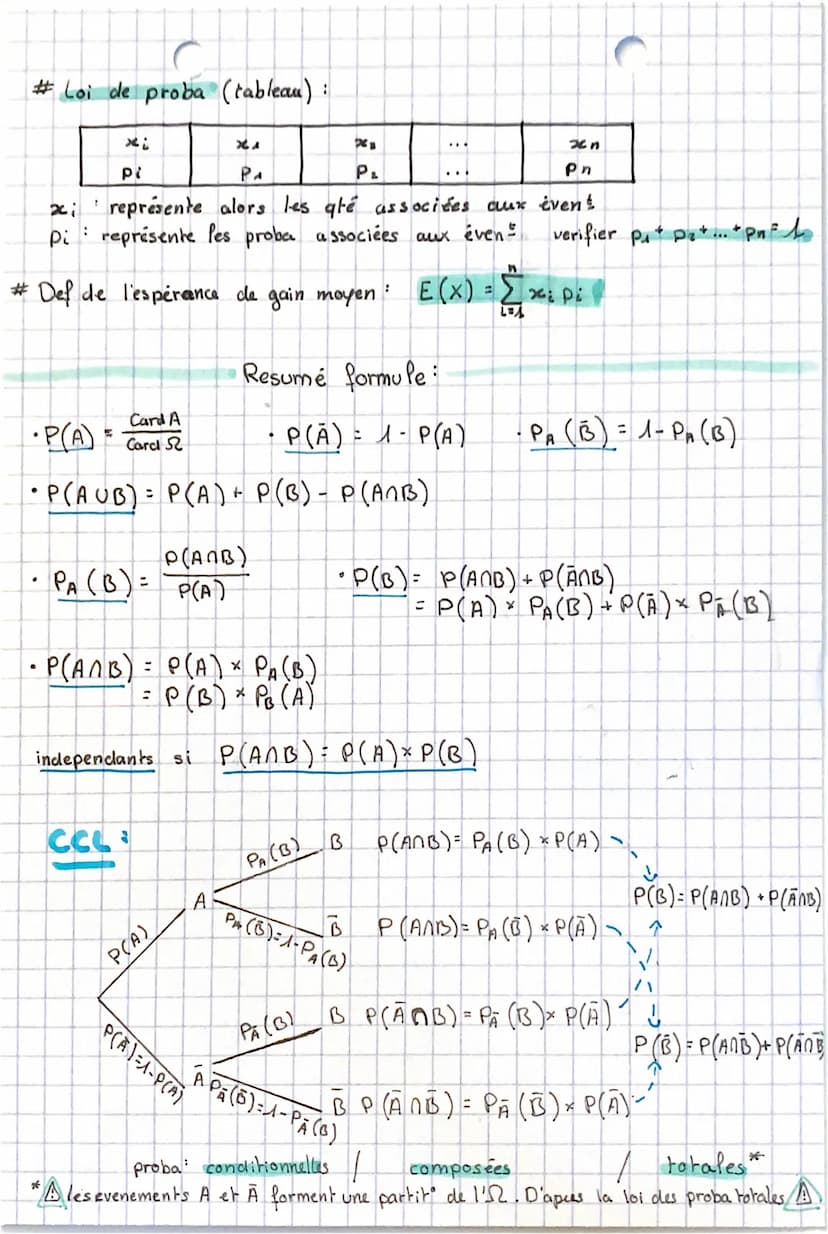 # Loi de proba (tableau) :
xi x1 x2 ... xn
pi P1 P2 ... Pn
xi : représente alors les qté associées aux évent
pi : représente les proba associées aux évent verifier p1+ p2+...+pn = 1
# Def de l'espérance de gain moyen : E(X) = Σ xi pi
n
i=1
Resumé formule :
· P(A) = Card A / Card Ω · P(Ā) = 1 - P(A) · PA (B̄) = 1 - PA (B)
· P(A∪B) = P(A) + P(B) - P(A∩B)
· PA (B) = P(A∩B) / P(A) · P(B) = P(A∩B) + P(Ā∩B)
= P(A) × PA(B) + P(Ā) × PĀ(B)
· P(A∩B) = P(A) × PA(B)
= P(B) × PB(A)
independants si P(A∩B) = P(A) × P(B)
CCL :
PA(B) B P(A∩B) = PA(B) × P(A)
P(B) = P(A∩B) + P(Ā∩B)
A
P(A) PA(B̄)=1-PA(B) B̄ P(A∩B) = PA(B̄) × P(Ā)
PĀ(B) B P(Ā∩B) = PĀ(B) × P(Ā)
P(B̄) = P(A∩B̄) + P(Ā∩B̄
P(Ā)=1-P(A) Ā
PĀ(B̄)=1-PĀ(B) B̄ P(Ā∩B̄) = PĀ(B̄) × P(Ā)
proba : conditionnelles / composées / totales*
* ⚠ les evenements A et Ā forment une partit° de l'Ω. D'apues la loi des proba totales ⚠